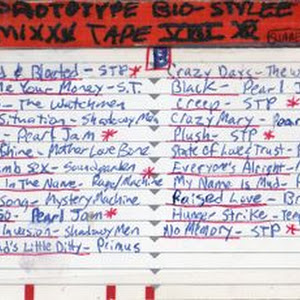 PROTOTYPE BIO-STYLEE
MIXXX TAPE
B
d & Bloated - STP *
Me Your Money - S.T.
- The Watchmen
Situation - Shadowy Men
- Pearl Jam *
Shine - Mother Love Bone
umb Sex - Soundgarden *
In The Name - Rage/Machine
Song - Mystery Machine
Go - Pearl Jam *
Invasion - Shadowy Men
d's Little Ditty - Primus
Crazy Days - The W
Black - Pearl J
Creep - STP *
Crazy Mary - Pear
Plush - STP *
State Of Love/Trust - P
Everyone's Alright -
My Name Is Mud - P
Raised Love - Br
Hunger Strike - Tem
No Memory - STP *